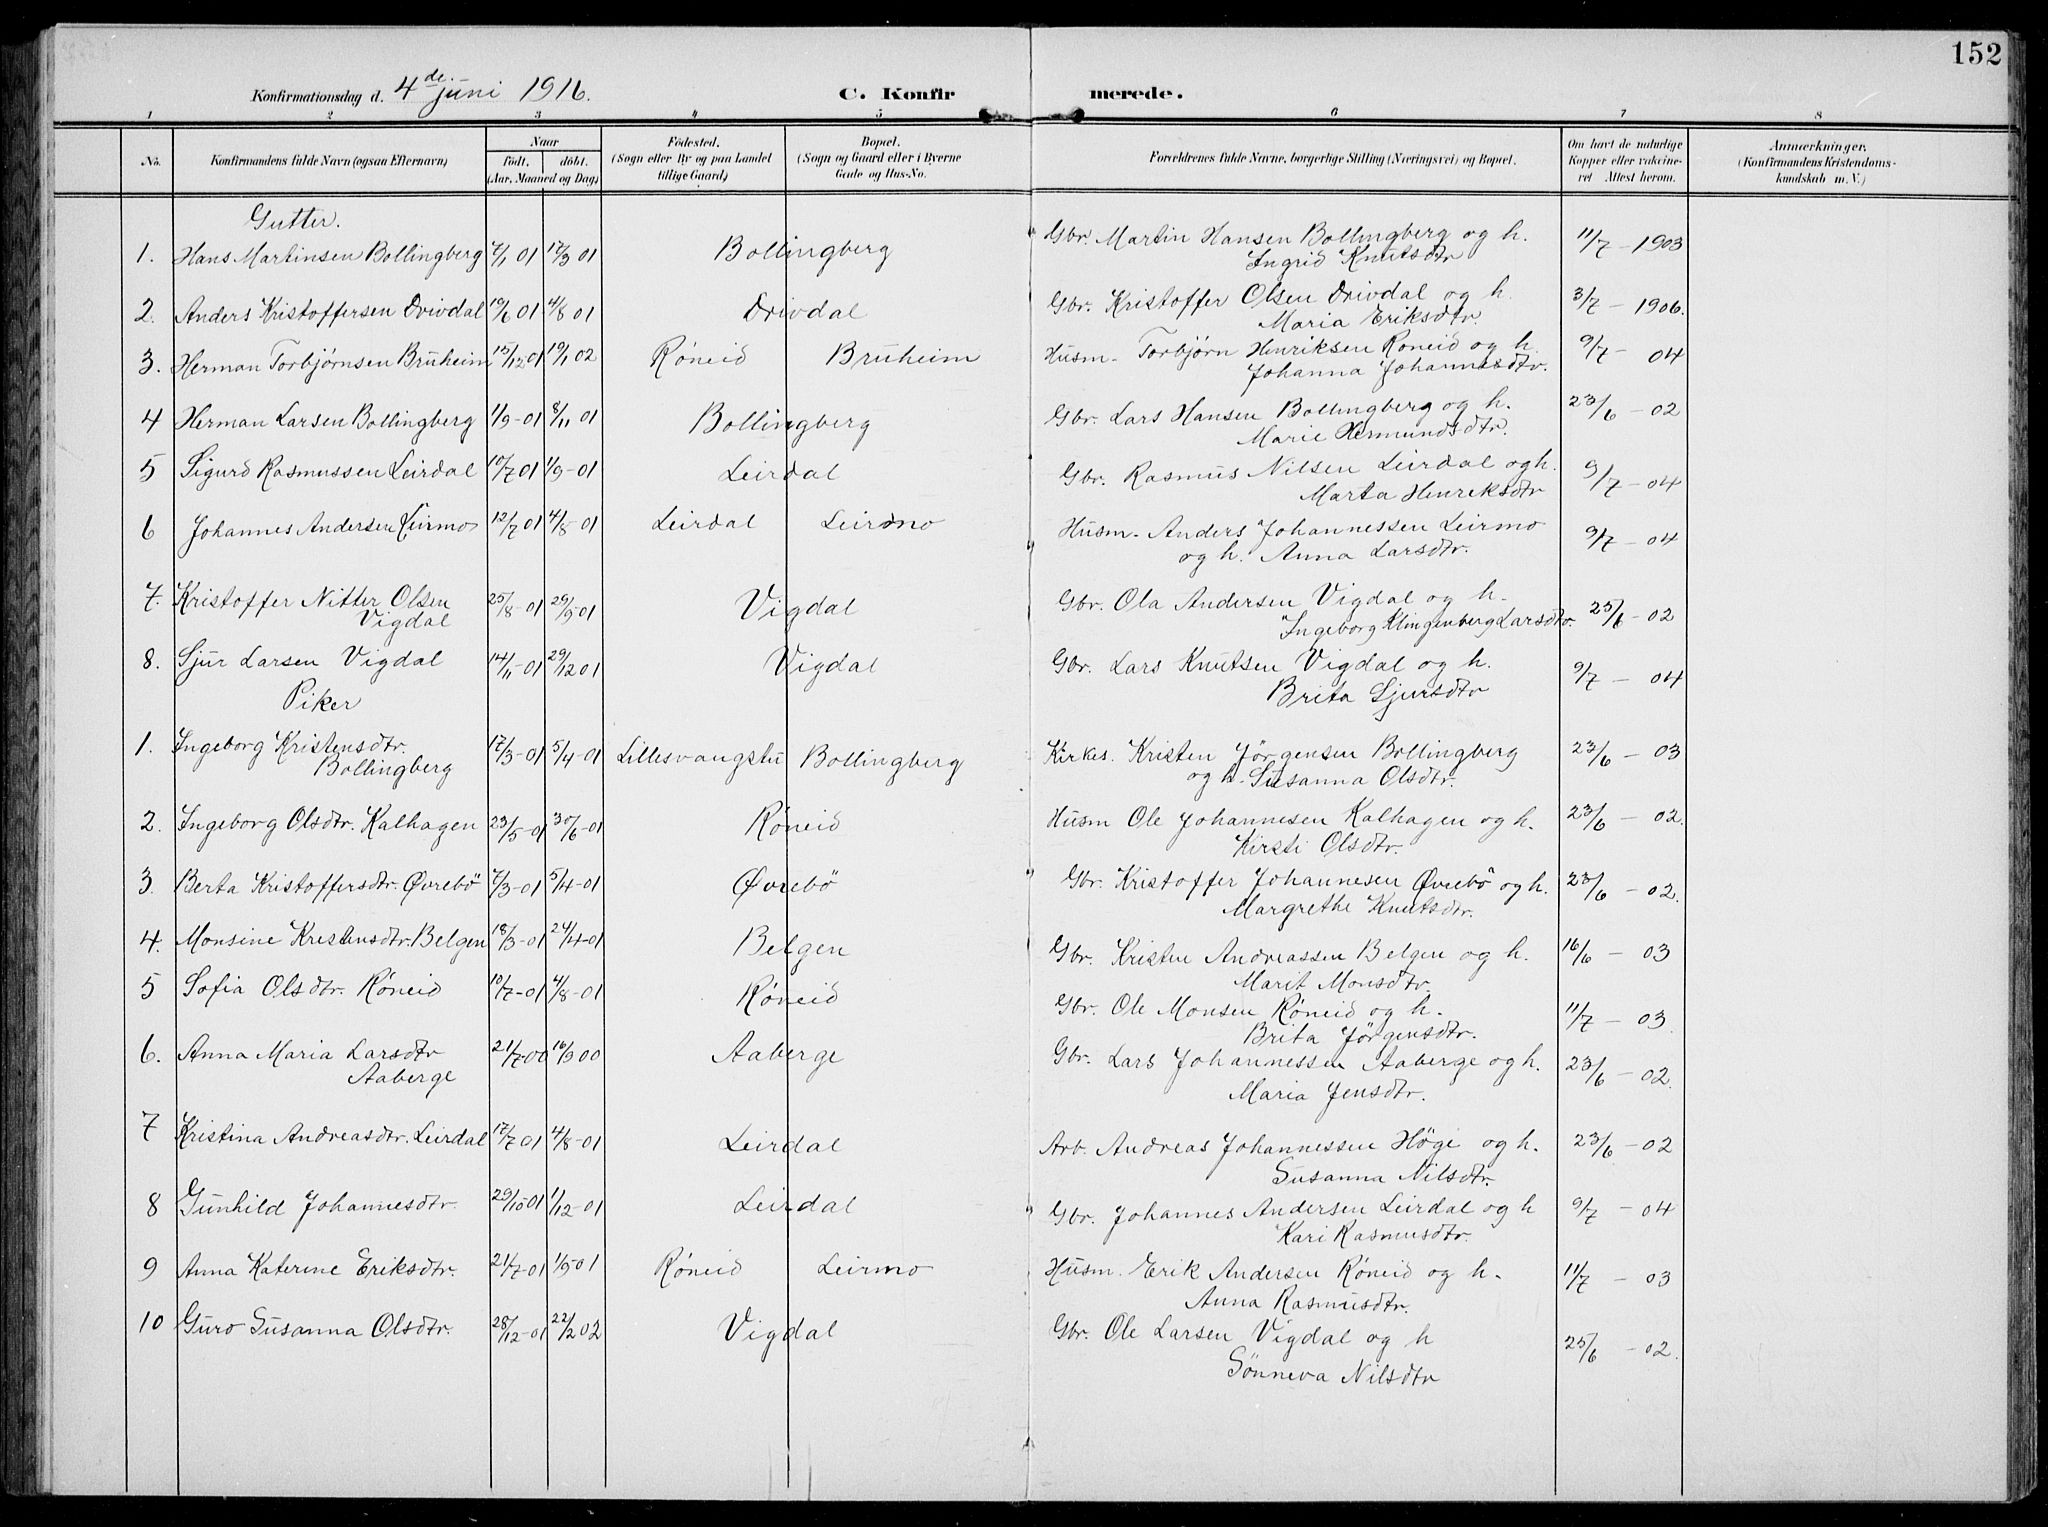 152
Konfirmationsdag d. 4de juni 1916.
C. Konfirmerede.
1 2 3 4 5 6 7 8
No.
Konfirmandens fulde Navn (ogsaa Efternavn)
Naar
födt. döbt.
(Aar, Maaned og Dag)
Födested.
(Sogn eller By og paa Landet
tillige Gaard)
Bopæl.
(Sogn og Gaard eller i Byerne
Gade og Hus-No.
Forældrenes fulde Navne, borgerlige Stilling (Næringsvei) og Bopæl.
Om havt de naturlige
Kopper eller vakcineret
Attest herom.
Anmærkninger.
(Konfirmandens Kristendomskundskab
m. V.)
Gutter.
1. Hans Martinsen Bollingberg 7/1 01 17/3 01 Bollingberg Gbr. Martin Hansen Bollingberg og h. 11/7 - 1903
Ingrid Knutsdtr
2. Anders Kristoffersen Drivdal 19/6 01 4/8 01 Drivdal Gbr. Kristoffer Olsen Drivdal og h. 3/7 - 1906.
Maria Eriksdtr.
3. Herman Torbjørnsen Bruheim 15/12 01 19/1 02 Røneid Bruheim Husm. Torbjörn Henriksen Røneid og h. 9/7 - 04
Johanna Johannesdtr.
4 Herman Larsen Bollingberg 1/9-01 8/11 01 Bollingberg Gbr. Lars Hansen Bollingberg og h. 23/6 - 02
Marie Hermundsdtr.
5 Sigurd Rasmussen Leirdal 10/7 01 1/9-01 Leirdal Gbr. Rasmus Nilsen Leirdal og h. 9/7 - 04
Marta Henreksdtr
6 Johannes Andersen Leirmo 12/7 01 4/8-01 Leirdal Leirmo Husm. Anders Johannessen Leirmo 9/7 - 04
og h. Anna Larsdtr.
7. Kristoffer Nitter Olsen 25/8-01 29/9 01 Vigdal Gbr. Ola Andersen Vigdal og h. 23/6 - 02
Vigdal Ingeborg Klingenberg Larsdtr.
8. Sjur Larsen Vigdal 14/11-01 29/12 01 Vigdal Gbr. Lars Knutsen Vigdal og h. 9/7 - 04
Brita Sjursdtr
Piker
1. Ingeborg Kristensdtr. 17/3-01 5/4-01 Lillesvangstu Bollingberg Kirkes. Kristen Jørgensen Bollingberg 23/6 - 03
Bollingberg og h. Susanna Olsdtr.
2. Ingeborg Olsdtr. Kalhagen 23/5-01 30/6-01 Røneid Husm Ole Johannesen Kalhagen og h. 23/6 - 02.
Kirsti Olsdtr.
3. Berta Kristoffersdtr. Øvrebö 7/3-01 5/4-01 Øvrebö Gbr. Kristoffer Johannesen Øvrebö og h. 23/6 - 02.
Margrethe Knutsdtr.
4. Monsine Kristensdtr. Belgen 18/3-01 24/4-01 Belgen Gbr. Kristen Andreassen Belgen og h. 16/6 - 03
Marit Monsdtr.
5 Sofia Olsdtr. Røneid 10/7-01 4/8-01 Røneid Gbr. Ole Monsen Røneid og h. 11/7 - 03.
Brita Jørgensdtr.
6. Anna Maria Larsdtr 21/7-00 16/9 00 Aaberge Gbr. Lars Johannessen Aaberge og h. 23/6 - 02.
Aaberge Maria Jensdtr.
7 Kristina Andreasdtr. Leirdal 17/7 01 4/8-01 Leirdal Arb. Andreas Johannessen Höge og h. 23/6 - 02
Susanna Nilsdtr.
8 Gunhild Johannesdtr. 29/10 01 1/12-01 Leirdal Gbr. Johannes Andersen Leirdal og h 9/7 - 04
Kari Rasmusdtr.
9 Anna Katerine Eriksdtr. 21/7-01 1/9-01 Røneid Leirmo Husm. Erik Andersen Røneid og h. 11/7 - 03
Anna Rasmusdtr.
10 Guro Susanna Olsdtr. 28/12-01 22/2 02 Vigdal Gbr. Ole Larsen Vigdal og h 25/6 - 02.
Sönneva Nilsdtr